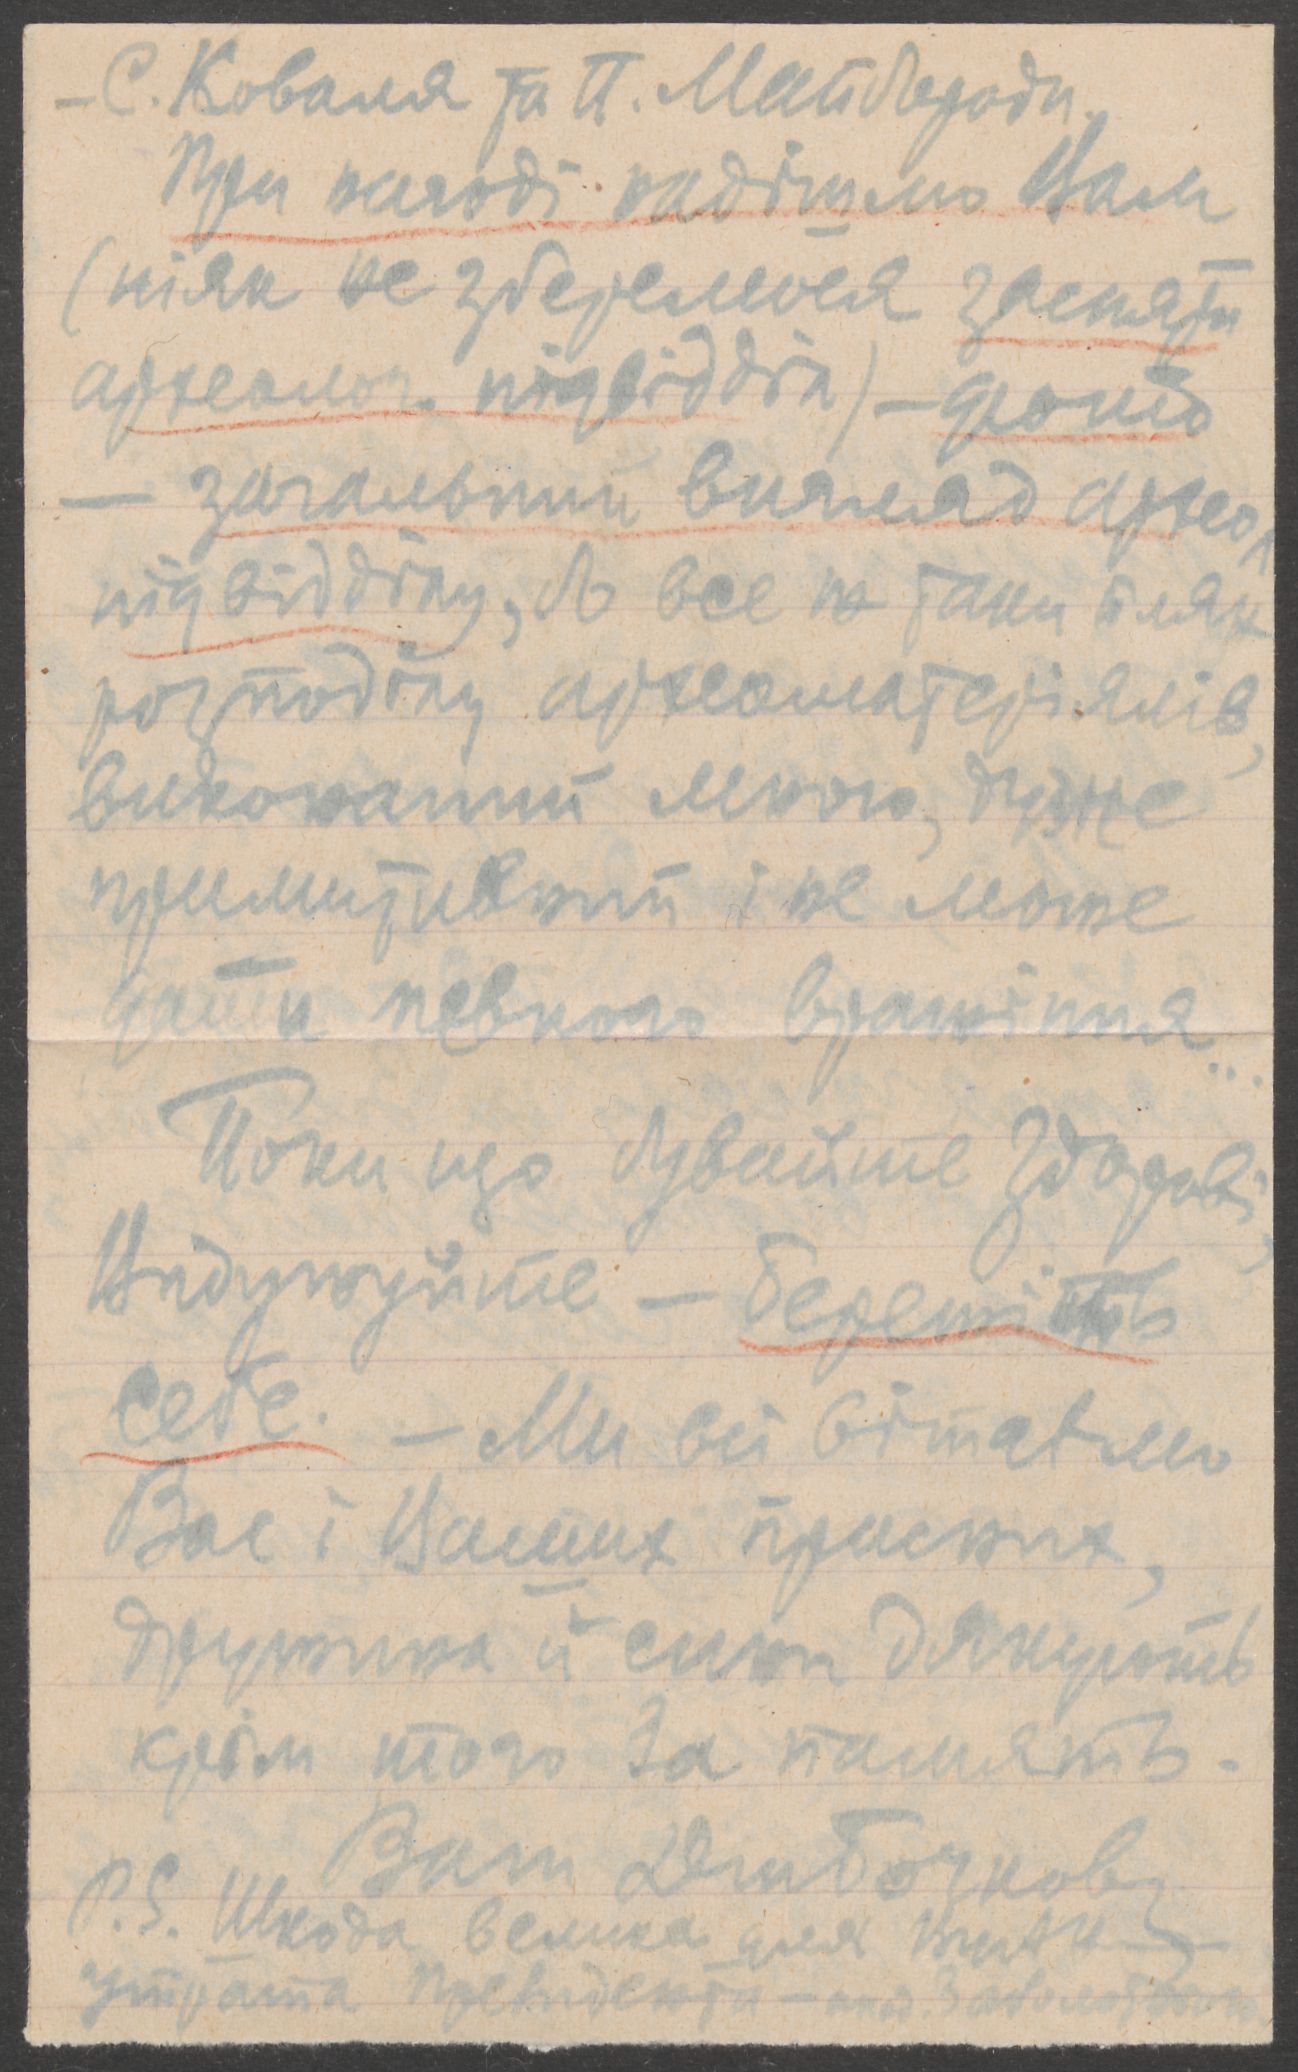 – С. Коваля та П. Майбороди.
При нагоді надішлмо Вам
(ніяк не зберемося засняти
археолог. підвідділ) – фото
– загальний вигляд архео
підвідділу, А все ж таки план
розподілу археоматеріялів,
виконаний мною, дуже
примитивний і не може
дати певного вражіння...
Поки що бувайте здорові,
Видужуйте – бережіть
себе. – Ми всі вітаємо
Вас і Ваших присних,
дружина й сини дякують
крім того за память.
Ваш
P.S. Шкода велика для
утрата Президента – акад. Заболотного.